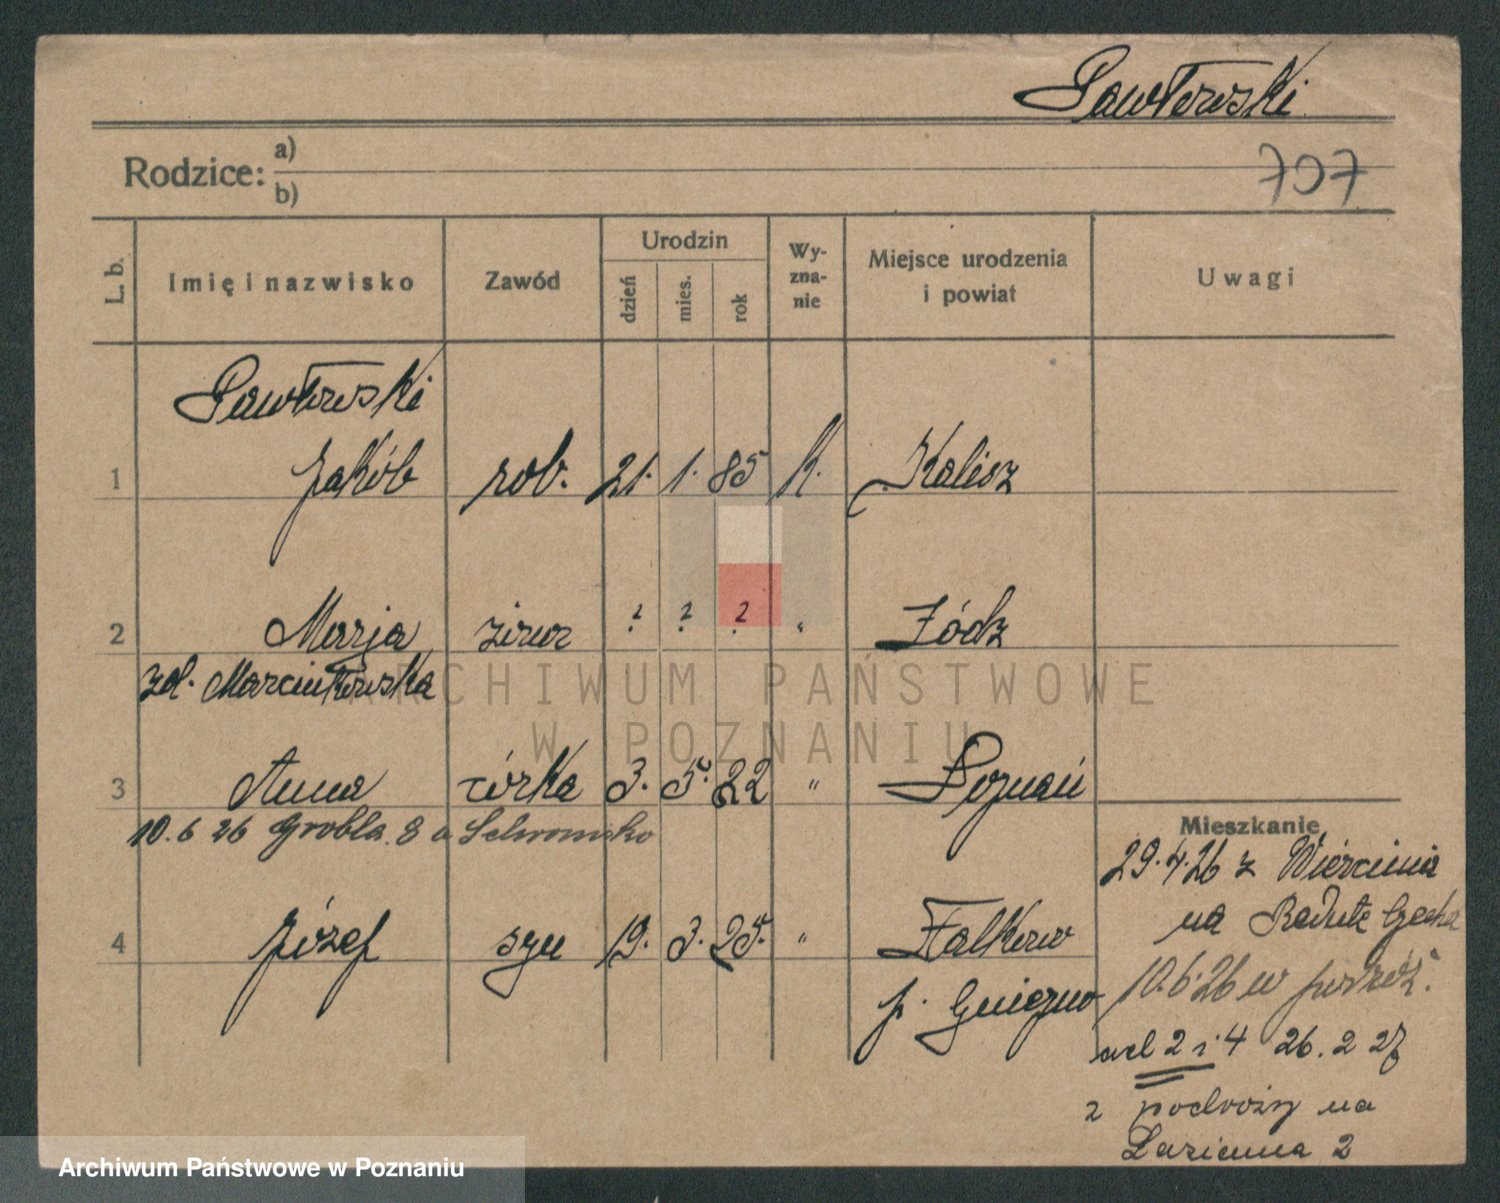 Pawłowski
707
Rodzice: a)
b)
L. b. Imię i nazwisko Zawód Urodzin dzień mies. rok Wyznanie Miejsce urodzenia i powiat Uwagi
Pawłowski
1 Jakób rob. 21. 1. 85 K. Kalisz
2 Marja żona ? ? ? " Łódz
zd. Marcinkowska
3 Anna córka 3. 5. 22 " Poznań
10.6 26 Grobla 8 a Schronisko
4 Józef syn 19. 3. 25. " Fałkowo
p. Gniezno
Mieszkanie
29.4.26 z
na Redute
10.6.26 w podróż.
ad 2 i 4 26. 2 27
z podroży na
Łazienna 2
ARCHIWUM PAŃSTWOWE
W POZNANIU
Archiwum Państwowe w Poznaniu